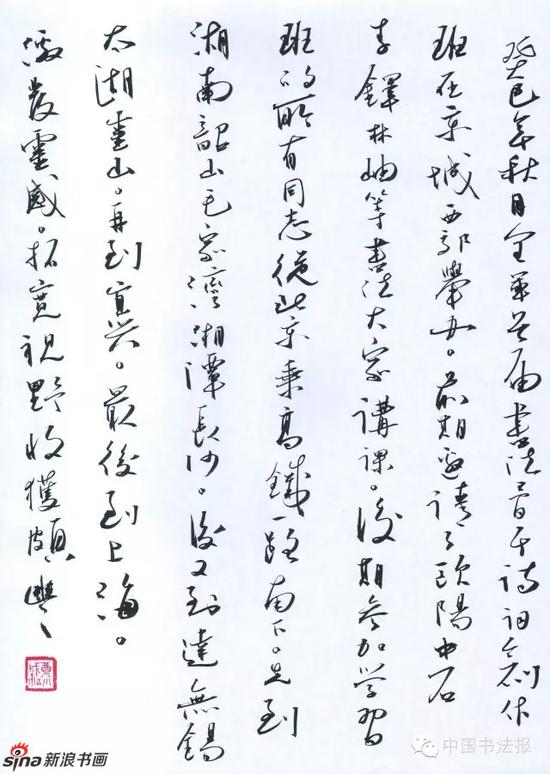 癸巳年秋月全军首届書法骨干诗词創作
班在京城西郊舉办。前期邀请了歐陽中石
李鐸林岫等書法大家講課。後期參加学習
班的所有同志從北京乘高鐵一路南下。先到
湖南韶山毛家灣湘潭長沙。後又到達無錫
太湖靈山。再到宜兴。最後到上海。
激發靈感。拓寬視野收獲頗豐
sina新浪书画
中国书法报